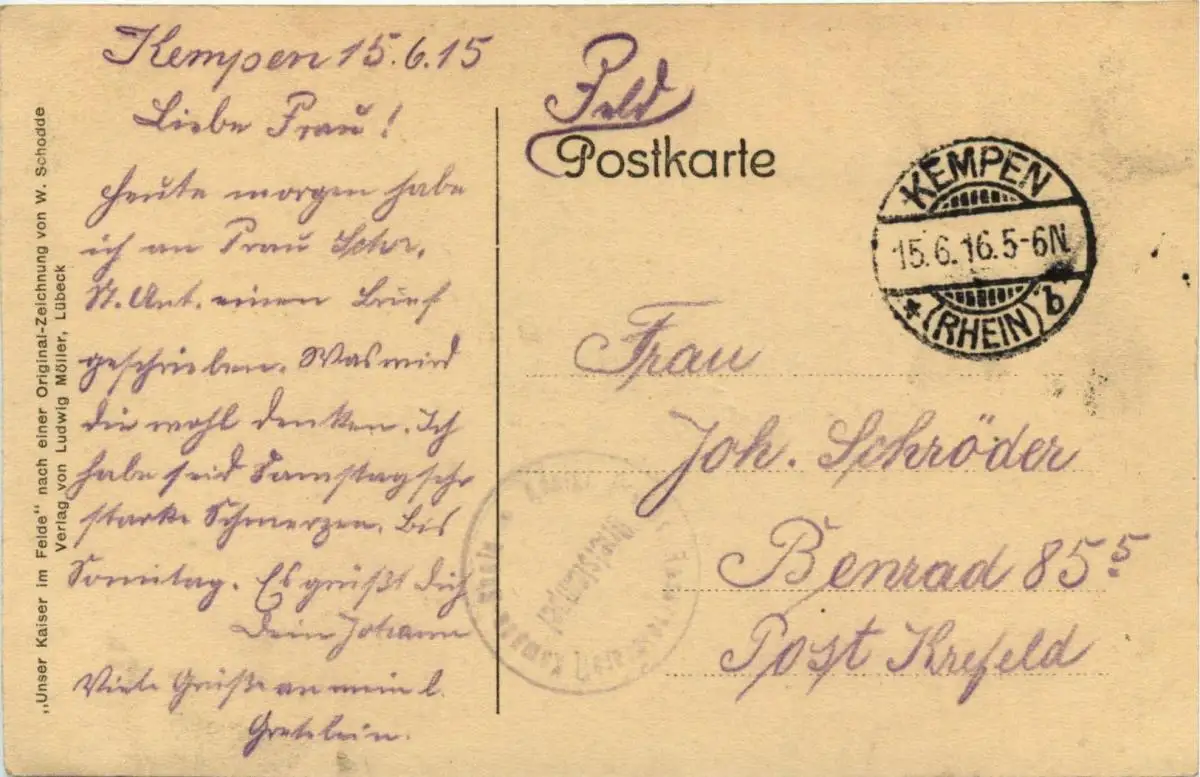 Kempen 15.6.15
Liebe Frau!
Heute morgen habe
ich an Frau Schr.
St. Ant. einen Brief
geschrieben. Was wird
die wohl denken. Ich
habe seid Samstag sehr
starke Schmerzen. Bis
Sonntag. Es grüßt Dich
Dein Johann
Viele Grüße an mein l.
Gretelein.
„Unser Kaiser im Felde" nach einer Original-Zeichnung von W. Schodde
Verlag von Ludwig Möller, Lübeck
Feld
Postkarte
KEMPEN
15.6.16.5-6N.
* (RHEIN) b
Frau
Joh. Schröder
Benrad 85⁵
Post Krefeld
Briefstempel
Kempen Rhein